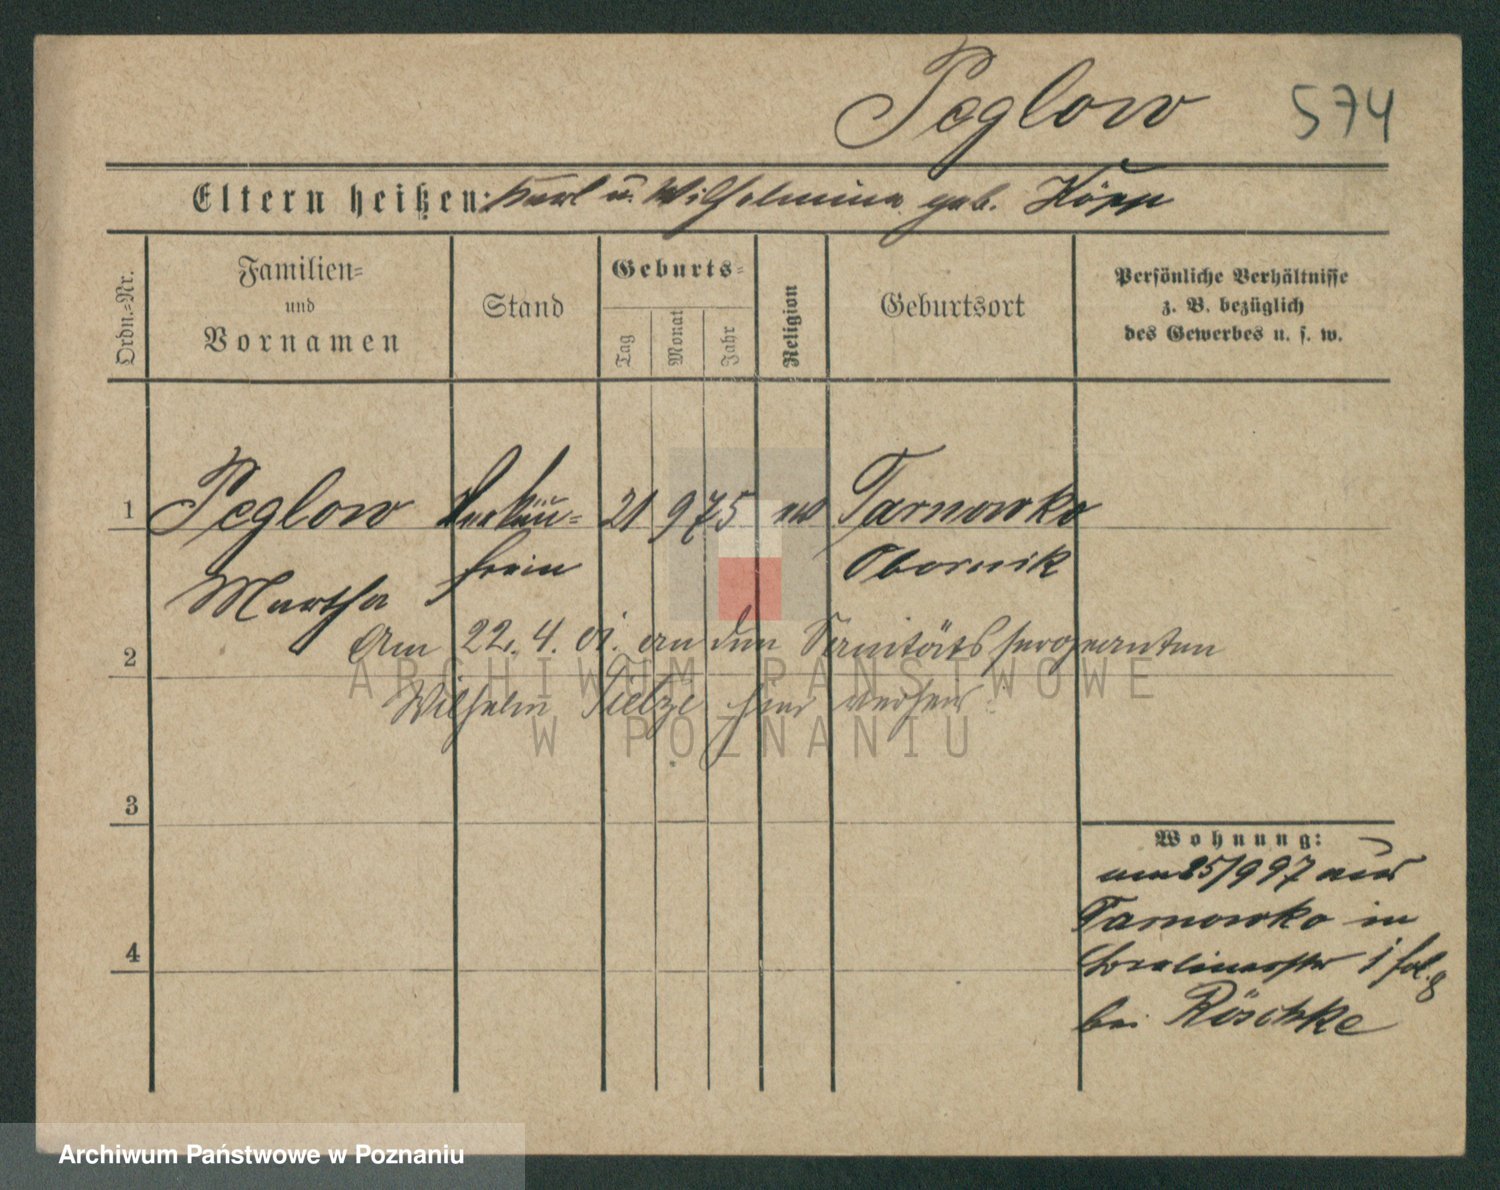 Peglow 574
Eltern heißen: Karl u. Wilhelmine geb. Köpp
Ordn.=Nr.
Familien=
und
Vornamen
Stand
Geburts=
Tag
Monat
Jahr
Religion
Geburtsort
Persönliche Verhältnisse
z. B. bezüglich
des Gewerbes u. s. w.
1 Peglow Verkäu= 21 9 75 ev Tarnowko
Martha ferin Obornik
2 Am 22. 4. 01. an den Sanitätssergeanten
Wilhelm Tietze hier verheir.
ARCHIWUM PAŃSTWOWE
W POZNANIU
3
Wohnung:
am 25/9 97 aus
Tarnowko in
4
bei Röschke
Archiwum Państwowe w Poznaniu